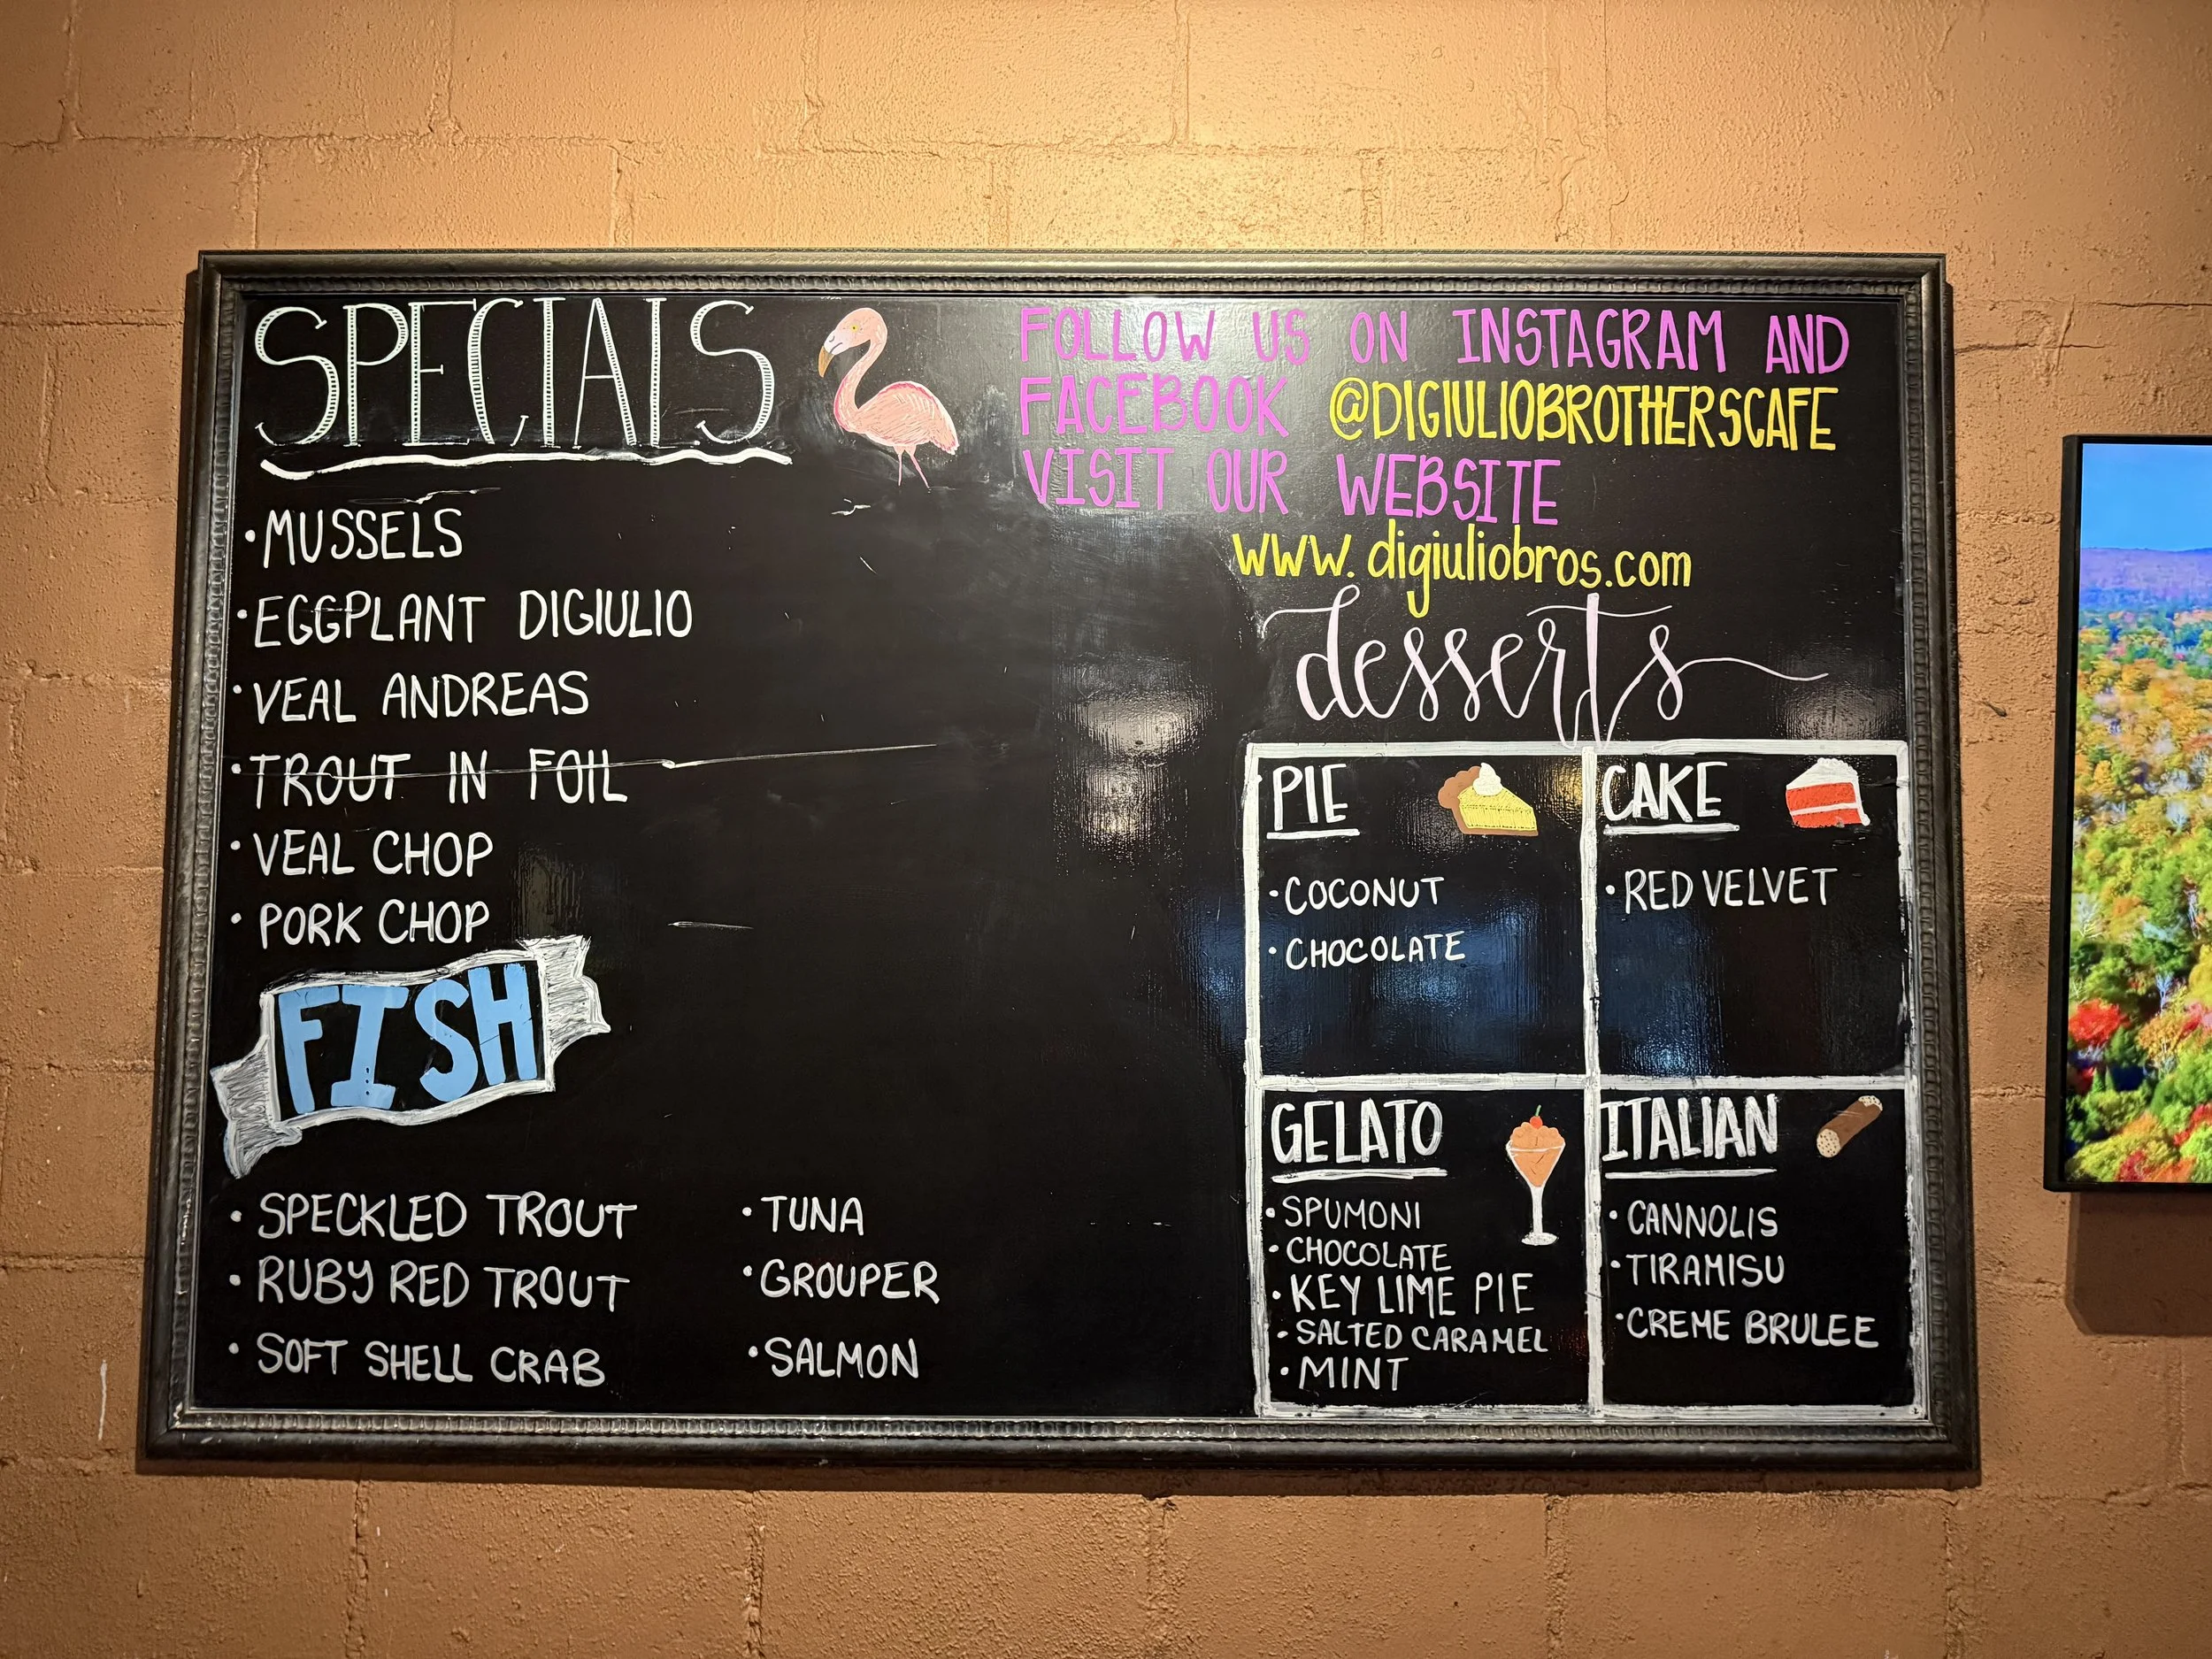 SPECIALS
• MUSSELS
• EGGPLANT DIGIULIO
• VEAL ANDREAS
• TROUT IN FOIL
• VEAL CHOP
• PORK CHOP
FISH
• SPECKLED TROUT
• RUBY RED TROUT
• SOFT SHELL CRAB
• TUNA
• GROUPER
• SALMON
FOLLOW US ON INSTAGRAM AND
FACEBOOK @DIGIULIOBROTHERSCAFE
VISIT OUR WEBSITE
www.digiuliobros.com
desserts
PIE
• COCONUT
• CHOCOLATE
CAKE
• RED VELVET
GELATO
• SPUMONI
• CHOCOLATE
• KEY LIME PIE
• SALTED CARAMEL
• MINT
ITALIAN
• CANNOLIS
• TIRAMISU
• CREME BRULEE